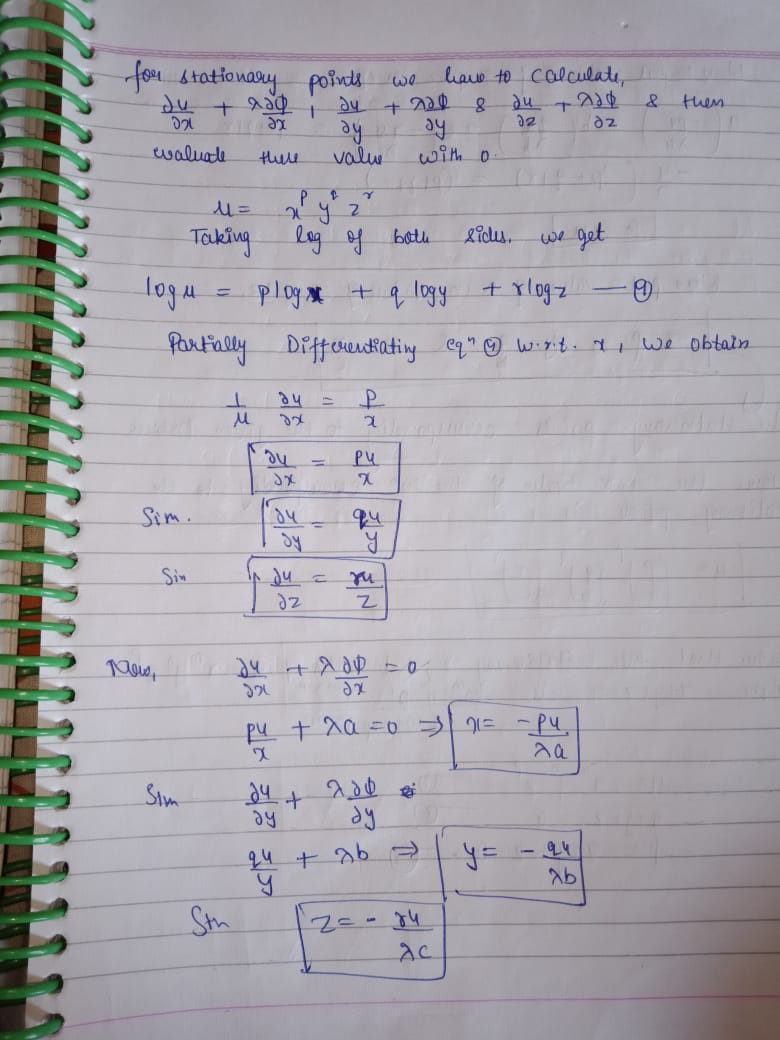 for stationary points we have to calculate,
∂u/∂x + λ∂φ/∂x , ∂u/∂y + λ∂φ/∂y & ∂u/∂z + λ∂φ/∂z & then
evaluate there value with 0.
u = x^p y^q z^r
Taking log of both sides. we get
log u = p log x + q log y + r log z — ④
Partially Differentiating eqⁿ ④ w.r.t. x, we obtain
1/u ∂u/∂x = p/x
∂u/∂x = pu/x
Sim. ∂u/∂y = qu/y
Sim ∂u/∂z = ru/z
Now, ∂u/∂x + λ∂φ/∂x = 0
pu/x + λa = 0 ⇒ x = -pu/λa
Sim ∂u/∂y + λ∂φ/∂y
qu/y + λb ⇒ y = - qu/λb
Sim z = - ru/λc